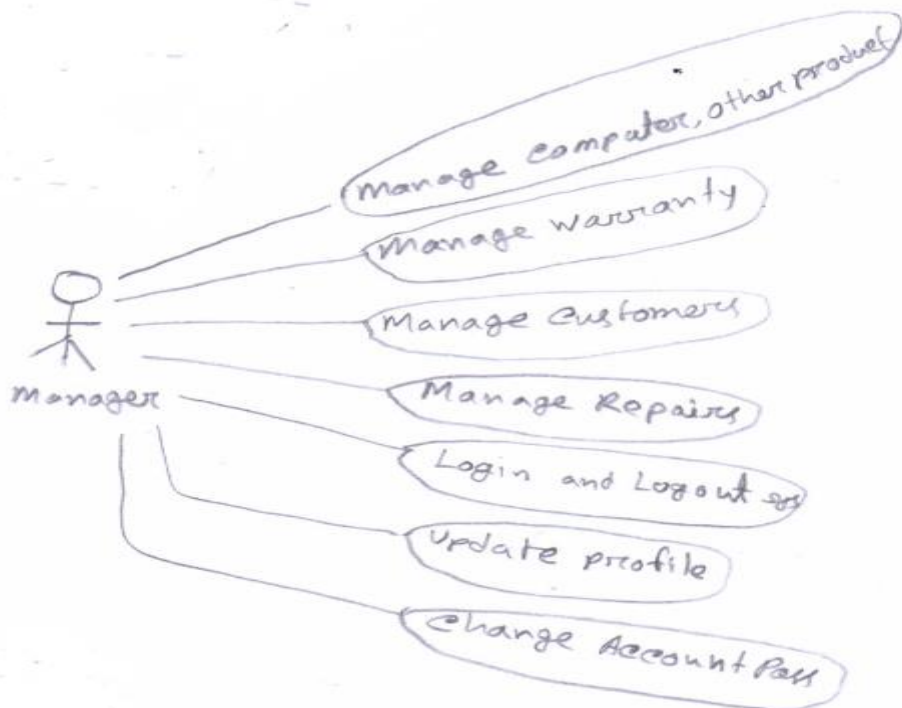 Manage Computer, other product
Manage Warranty
Manage Customers
Manage Repairs
Manager
Login and Logout sys
Update profile
Change Account Pass